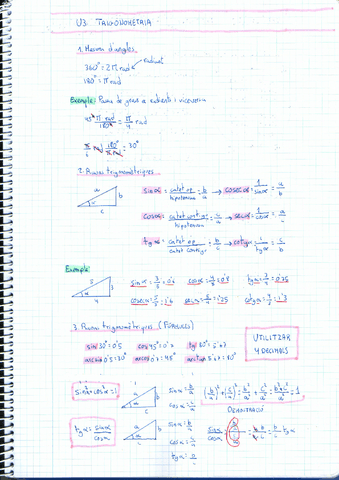 U3. TRIGONOMETRIA
1. Mesura d'angles
360° = 2π rad
radians
180° = π rad
Exemple: Passa de graus a radiants i viceversa
45° π rad / 180° = π/4 rad
π/6 rad 180°/π rad = 30°
2. Raons trigonomètriques
a b c α
sin α = catet op / hipotenusa = b/a → cosec α = 1/sin α = a/b
cos α = catet contigu / hipotenusa = c/a → sec α = 1/cos α = a/c
tg α = catet op / catet contigu = b/c → cotg α = 1/tg α = c/b
Exemple:
5 3 4 α
sin α = 3/5 = 0'6 cos α = 4/5 = 0'8 tg α = 3/4 = 0'75
cosec α = 5/3 = 1'6 sec α = 5/4 = 1'25 cotg α = 4/3 = 1'3
3. Raons trigonomètriques (FÓRMULES)
sin 30° = 0'5 cos 45° = 0'7 tg 60° = 1'7
arcsin 0'5 = 30° arccos 0'7 = 45° arctan 1'7 = 60°
UTILITZAR
4 DECIMALS
sin²α + cos²α = 1
a b c α
sin α = b/a
cos α = c/a
(b/a)² + (c/a)² = b²/a² + c²/a² = b²+c²/a² = 1
DEMOSTRACIÓ
tg α = sin α / cos α
a b c α
sin α = b/a
cos α = c/a
tg α =
sin α / cos α = b/a / c/a = b/c = tg α